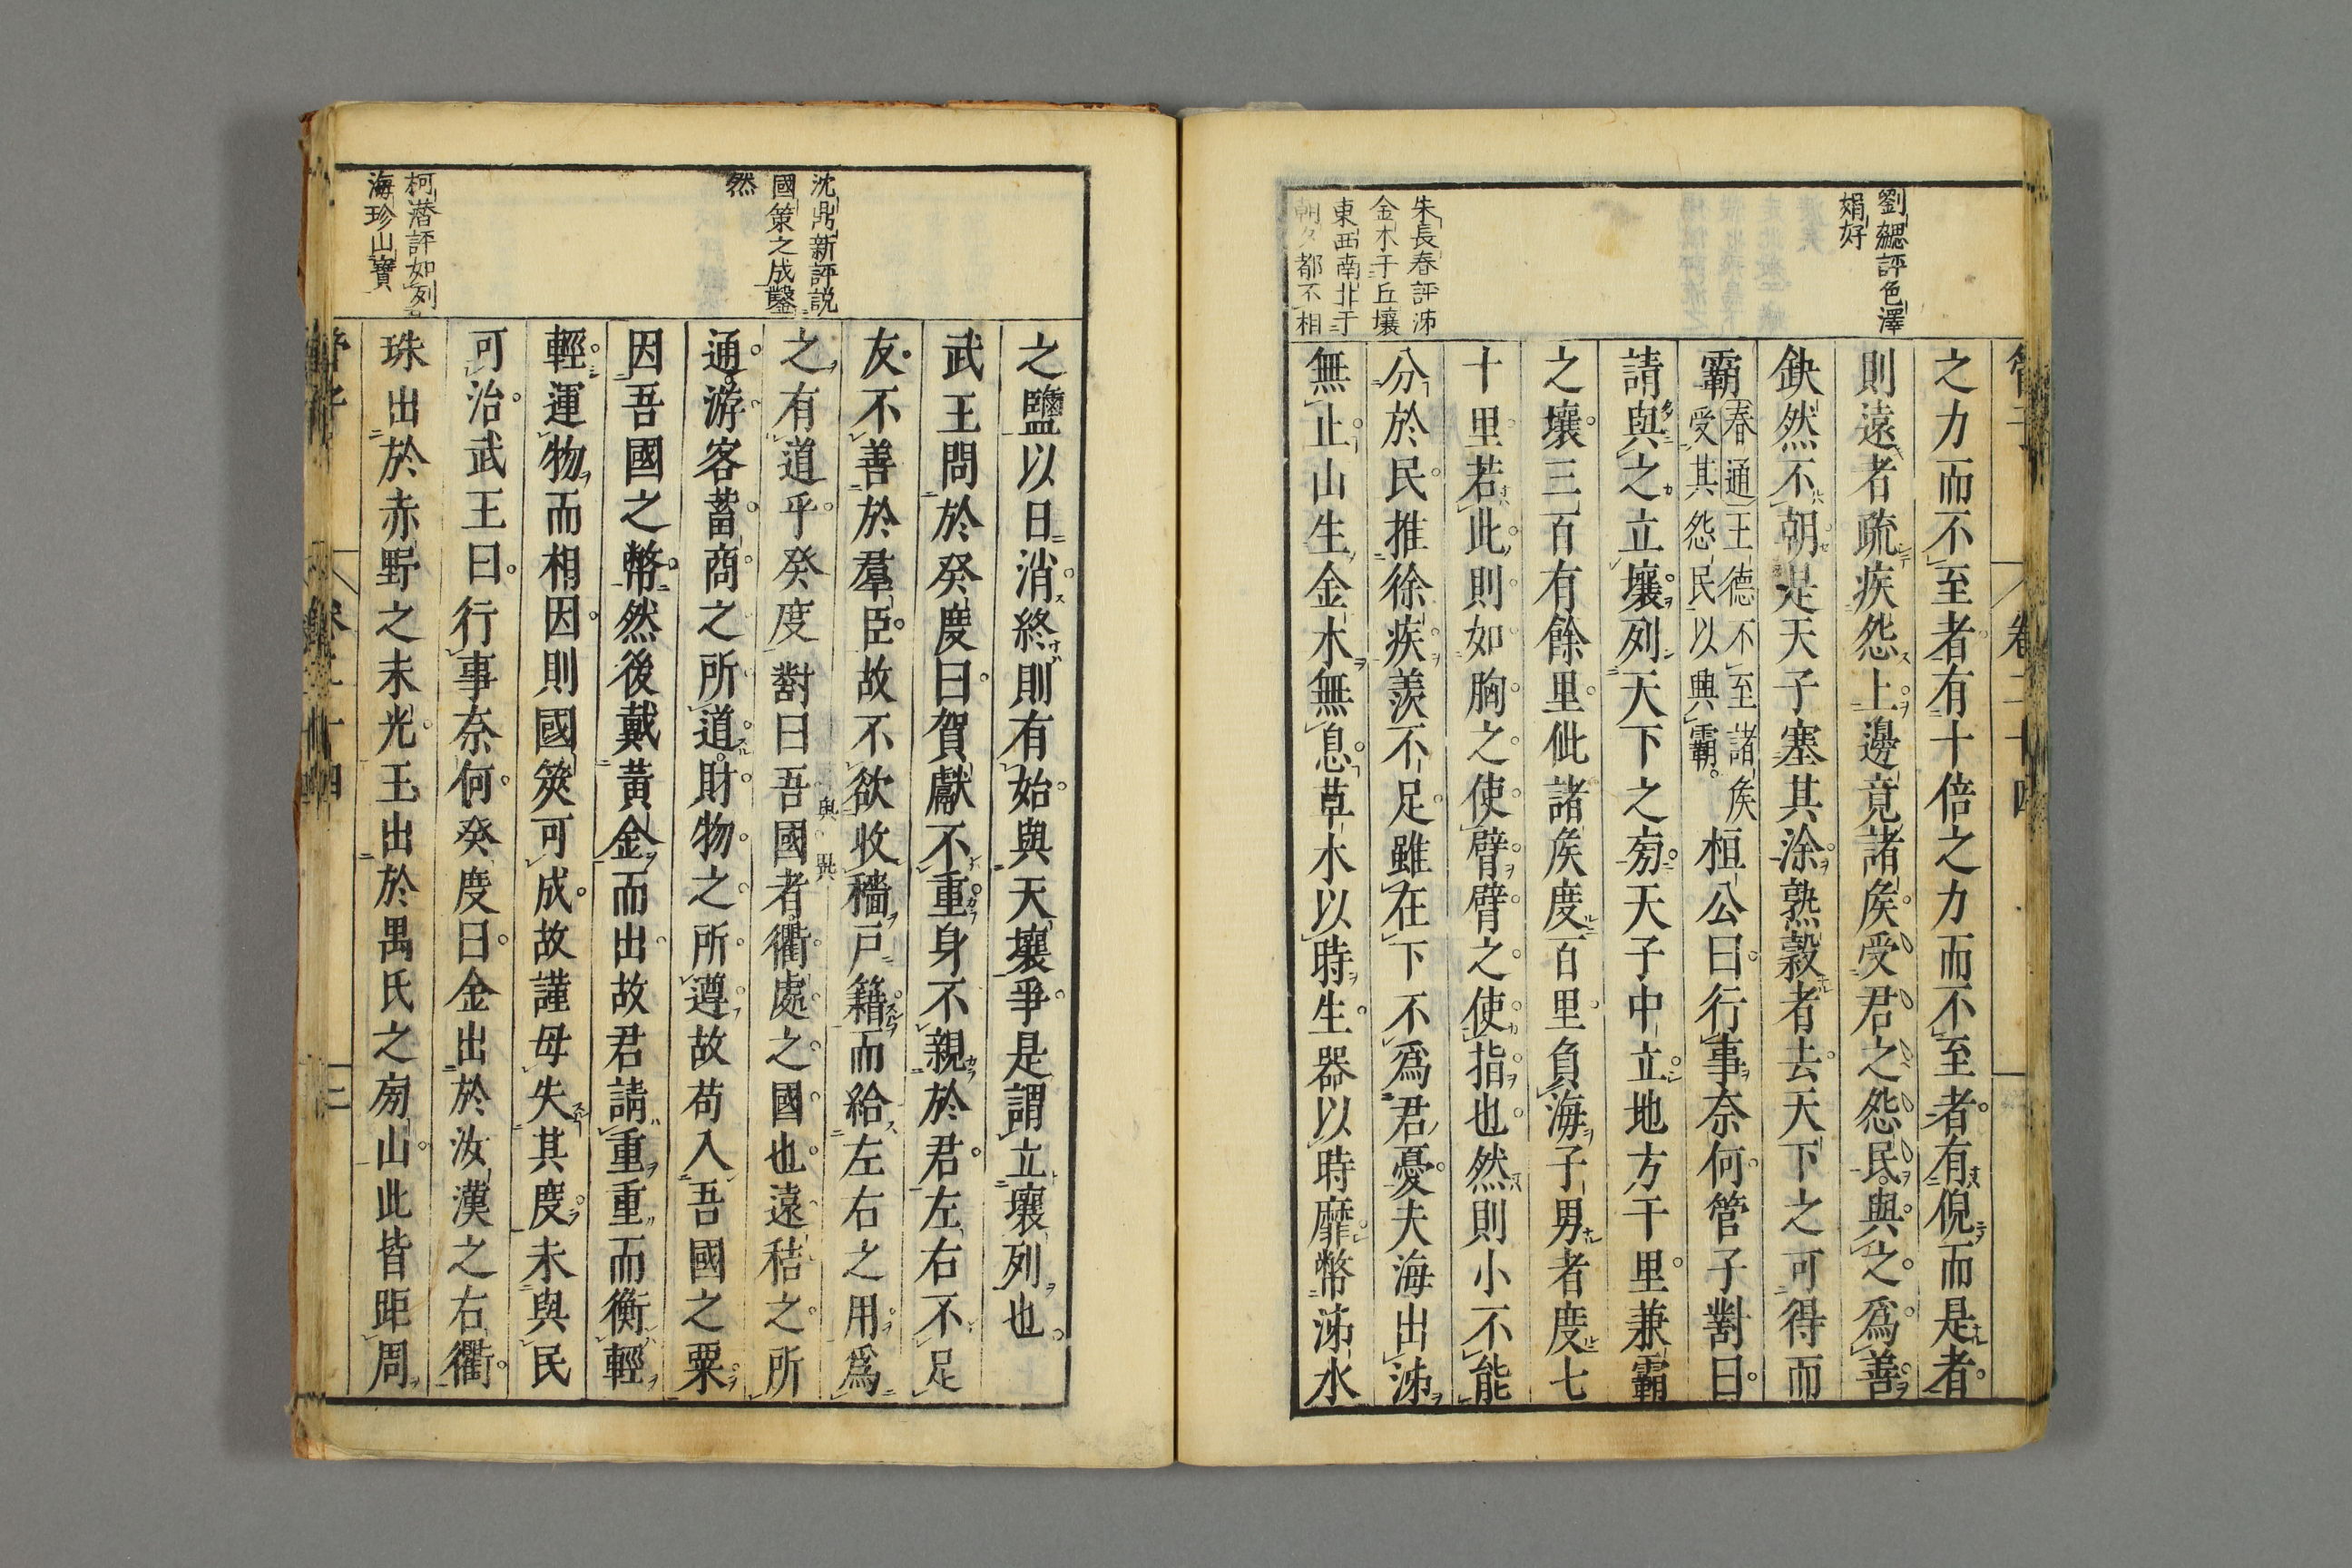 管子
卷二十四
劉勰評色澤
娟好
朱長春評泲
金木于丘壤
東西南北于
朝夕都不相
之力而不至者有十倍之力而不至者有倪而是者
則遠者疏疾怨上邊竟諸矦受君之怨民與之爲善
鈌然不朝是天子塞其涂熟穀者去天下之可得而
霸
春通王德不至諸矦
受其怨民以興霸
桓公曰行事奈何管子對曰
請與之立壤列天下之㫄天子中立地方千里兼霸
之壤三百有餘里仳諸矦度百里負海子男者度七
十里若此則如胸之使臂臂之使指也然則小不能
分於民推徐疾羨不足雖在下不爲君憂夫海出泲
無止山生金木無息草木以時生器以時靡幣泲水
沈鼎新評説
國策之成鑿
然
柯潛評如列
海珍山寶
之鹽以日消終則有始與天壤爭是謂立壤列也
武王問於癸度曰賀獻不重身不親於君左右不足
友不善於羣臣故不欲收穡戸籍而給左右之用爲
之有道乎癸度對曰吾國者衢處之國也遠秸之所
通游客蓄商之所道財物之所遵故苟入吾國之粟
因吾國之幣然後戴黃金而出故君請重重而衡輕
輕運物而相因則國筴可成故謹毋失其度未與民
可治武王曰行事奈何癸度曰金出於汝漢之右衢
珠出於赤野之末光玉出於禺氏之㫄山此皆距周
管子
卷二十四